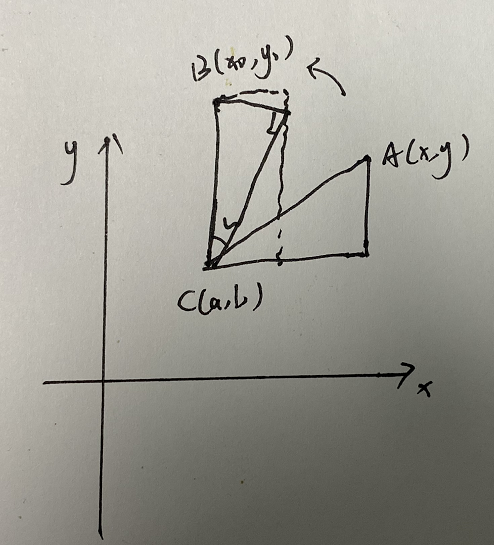 B(x₀,y₀)
y
A(x,y)
C(a,b)
x